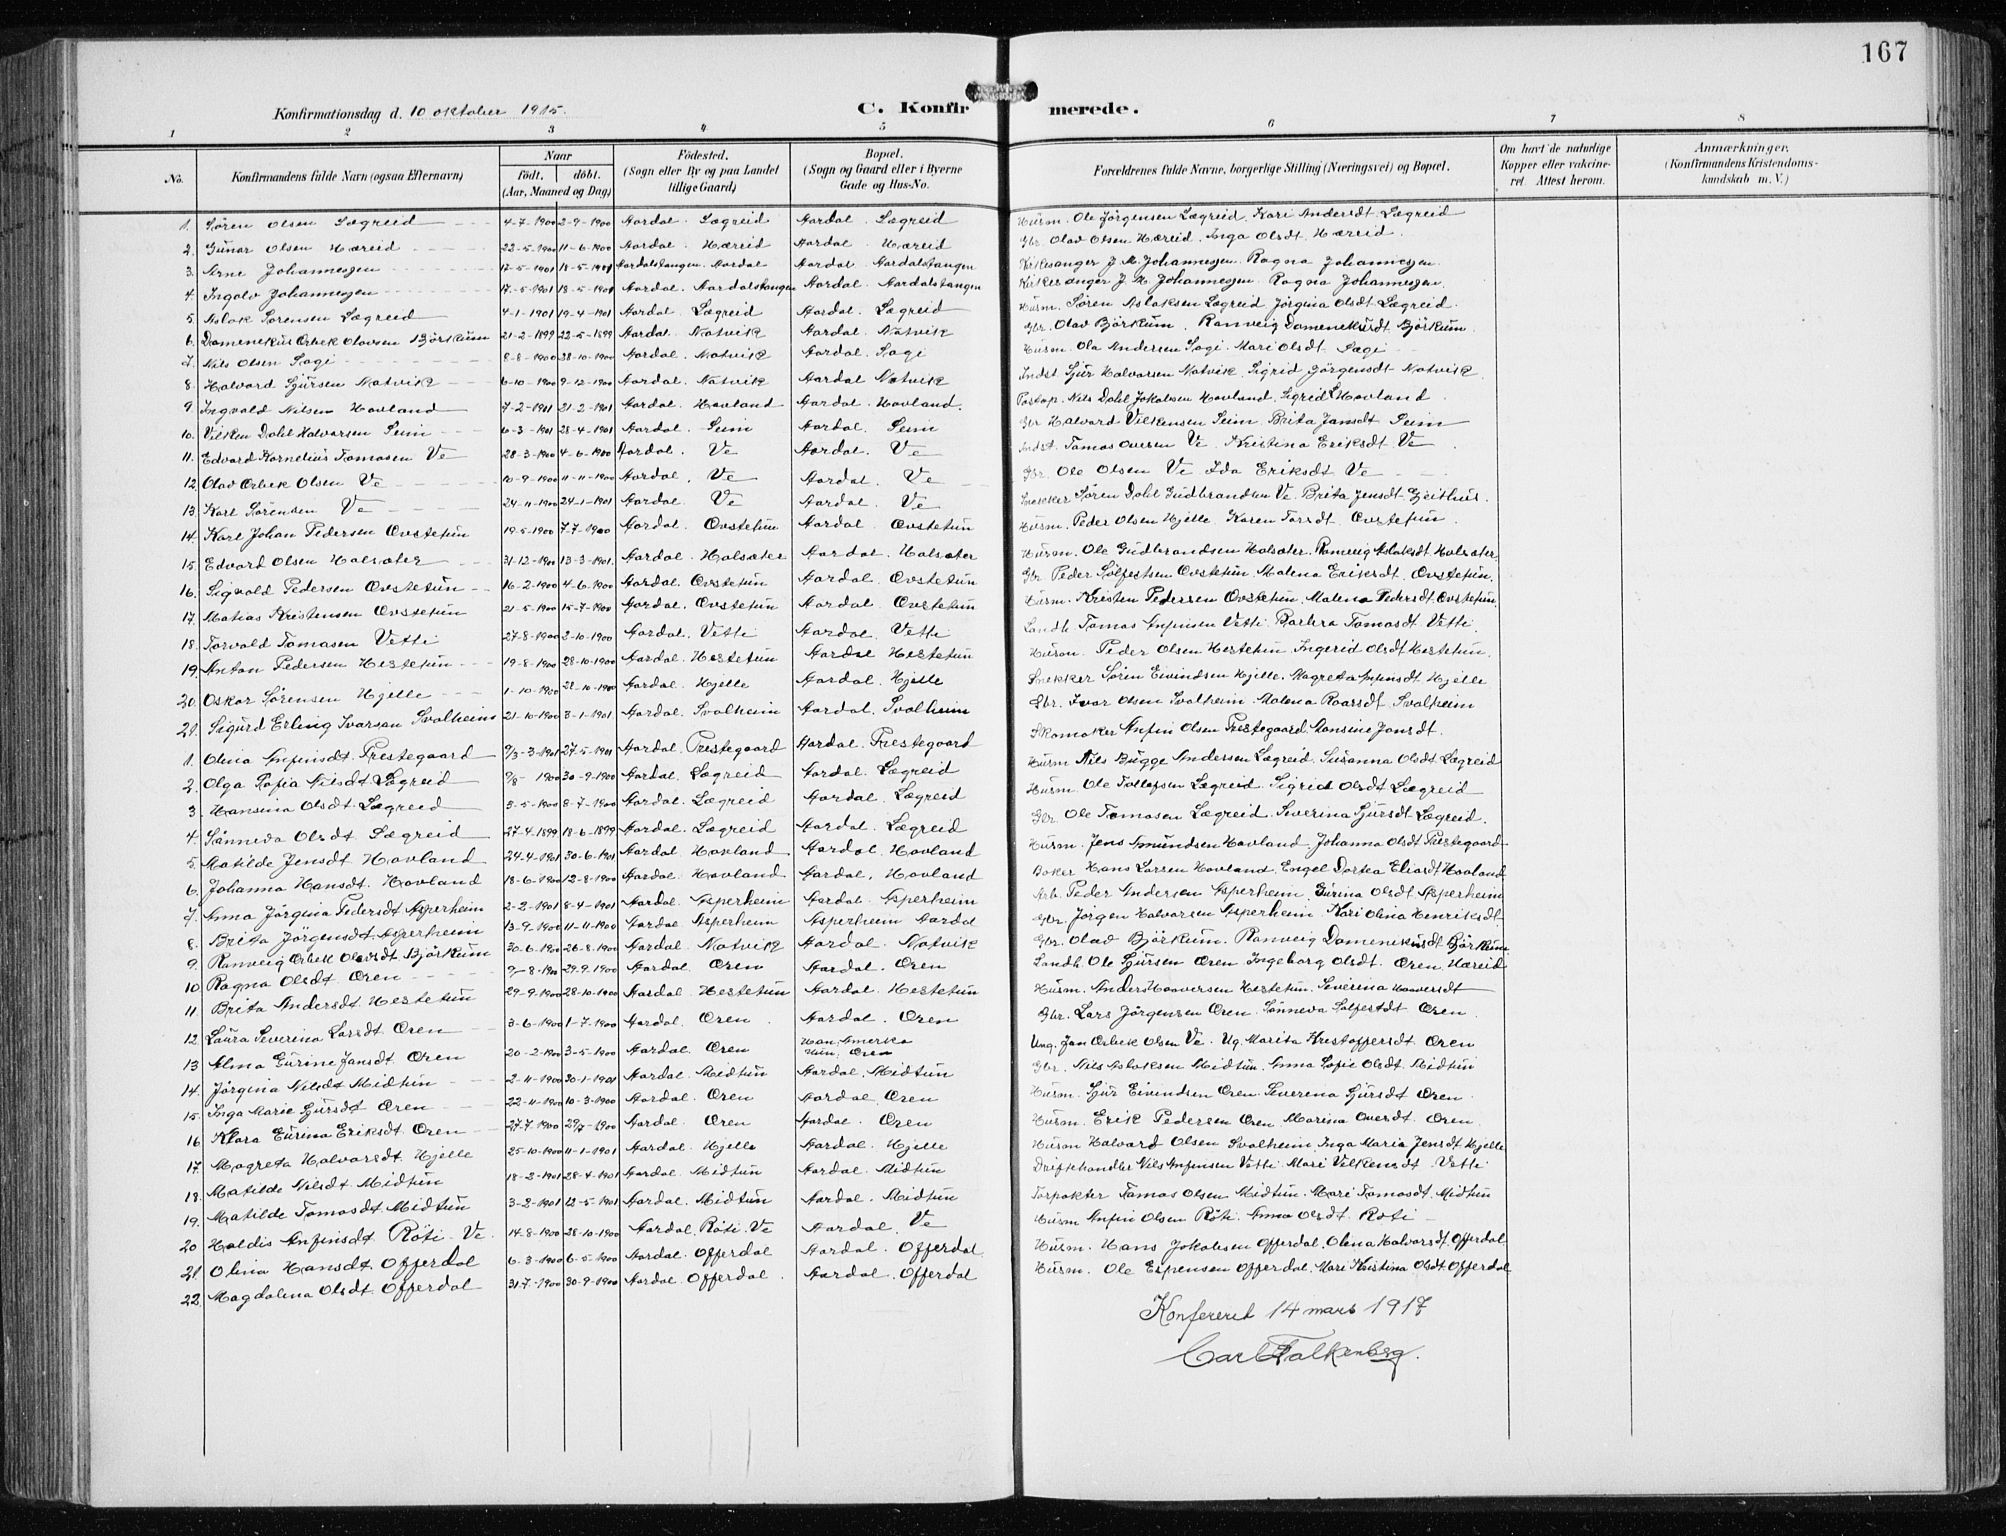 167
Konfirmationsdag d. 10 oktober 1915. C. Konfirmerede.
1 2 3 4 5 6 7 8
No. Konfirmandens fulde Navn (ogsaa Efternavn) Naar født. døbt. (Aar, Maaned og Dag) Fødested. (Sogn eller By og paa Landet tillige Gaard) Bopæl. (Sogn og Gaard eller i Byerne Gade og Hus-No. Forældrenes fulde Navne, borgerlige Stilling (Næringsvei) og Bopæl. Om havt de naturlige Kopper eller vakcineret. Attest herom. Anmærkninger. (Konfirmandens Kristendomskundskab m. V.)
1. Søren Olsen Lægreid 4-7-1900 2-9-1900 Aardal. Lægreid Aardal. Lægreid Husm. Ole Jörgensen Lægreid. Kari Andersdt. Lægreid
2. Gunar Olsen Hæreid 22-5-1900 11-6-1900 Aardal. Hæreid Aardal. Hæreid Gbr. Olav Olsen Hæreid. Inga Olsdt. Hæreid.
3. Arne Johannesen 17-5-1901 18-5-1901 Aardalstangen. Aardal Aardal. Aardalstangen Kirkesanger J. M. Johannesen. Ragna Johannesen.
4. Ingolv Johannesen 17-5-1901 18-5-1901 Aardal. Aardalstangen Aardal. Aardalstangen Kirkesanger J. M. Johannesen. Ragna Johannesen.
5. Aslak Sørensen Lægreid 4-1-1901 19-4-1901 Aardal. Lægreid Aardal. Lægreid Husm. Søren Aslaksen Lægreid Jörgina Olsdt. Lægreid.
6. Damenekus Orbek Olavsen Björkum 21-2-1899 22-5-1899 Aardal. Natvik Aardal. Natvik Gbr. Olav Björkum. Ranveig Damenekusdt Björkum.
7. Nils Olsen Sagi 8-8-1900 28-10-1900 Aardal. Natvik Aardal. Sagi Husm. Ola Andersen Sagi. Mari Olsdt. Sagi
8. Halvard Sjursen Natvik 6-10-1900 9-12-1900 Aardal. Natvik Aardal Natvik Indst. Sjur Halvarsen Natvik. Sigrid Jörgensdt Natvik.
9. Ingvald Nilsen Hovland 7-2-1901 21-2-1901 Aardal. Hovland Aardal. Hovland. Postop. Nils Dahl Jakobsen Hovland. Sigrid Hovland
10. Vilken Dahl Halvarsen Seim 6-3-1901 28-4-1901 Aardal. Seim Aardal. Seim Gbr Halvard Vilkensen Seim. Brita Jansdt Seim
11. Edvard Kornelius Tamasen Ve 28-3-1900 4-6-1900 Aardal. Ve Aardal. Ve Indst. Tamas Oversen Ve. Kristina Eriksdt Ve
12. Olav Orbek Olsen Ve 10-9-1900 11-11-1900 Aardal. Ve Aardal. Ve Gbr. Ole Olsen Ve Ida Eriksdt Ve
13. Karl Sørensen Ve 24-11-1900 24-1-1901 Aardal. Ve Aardal. Ve Snekker Søren Dahl Gudbrandsen Ve. Brita Jensdt Geithus.
14. Karl Johan Pedersen Ovstetun 19-5-1900 7-7-1900 Aardal. Ovstetun Aardal. Ovstetun Husm. Peder Olsen Hjelle. Karen Torsdt. Ovstetun.
15 Edvard Olsen Halsæter 31-12-1900 13-3-1901. Aardal. Halsæter Aardal. Halsæter Husm. Ole Gudbrandsen Halsæter. Ranveig Aslaksdt. Halsæter.
16. Sigvald Pedersen Ovstetun 16-2-1900 4-6-1900 Aardal. Ovstetun Aardal. Ovstetun Gbr Peder Sølfestsen Ovstetun. Malena Eriksdt. Ovstetun.
17. Matias Kristensen Ovstetun 21-5-1900 15-7-1900 Aardal. Ovstetun Aardal. Ovstetun Husm. Kristen Pedersen Ovstetun. Malena Pedersdt Ovstetun.
18. Torvald Tomasen Vetti 27-8-1900 2-10-1900 Aardal. Vetti Aardal. Vetti Landh. Tomas Anfinsen Vetti. Barbra Tomasdt. Vetti.
19. Anton Pedersen Hestetun 19-8-1900 28-10-1900 Aardal. Hestetun Aardal Hestetun Husm. Peder Olsen Hestetun Ingerid Olsdt Hestetun.
20. Oskar Sørensen Hjelle 1-10-1900 28-10-1900 Aardal. Hjelle Aardal. Hjelle Snekker Søren Eivindsen Hjelle. Magreta Anfinsdt Hjelle
21. Sigurd Erling Ivarsen Svalheim 21-10-1900 3-1-1901. Aardal. Svalheim Aardal. Svalheim Gbr. Ivar Olsen Svalheim Malena Roarsdt Svalheim
1. Olina Anfinsdt. Prestegaard 9/3-3-1901 27-5-1901 Aardal. Prestegaard Aardal. Prestegaard Skomaker Anfin Olsen Prestegaard. Hansine Jansdt.
2. Olga Sofia Nilsdt Lægreid 9/8- 1900 30-9-1900 Aardal. Lægreid Aardal. Lægreid Husm Nils Bugge Andersen Lægreid. Susanna Olsdt Lægreid
3. Hansina Olsdt. Lægreid 3-5-1900 8-7-1900 Aardal. Lægreid Aardal. Lægreid Husm. Ole Tollefsen Lægreid. Sigrid Olsdt Lægreid
4. Sünneva Olsdt Lægreid 27-4-1899 18-6-1899 Aardal. Lægreid Aardal. Lægreid Gbr. Ole Tomasen Lægreid. Severina Sjursdt Lægreid.
5. Matilde Jensdt Hovland 24-4-1901 30-6-1901 Aardal. Hovland Aardal. Hovland Husm. Jens Amundsen Hovland Johanna Olsdt Prestegaard
6. Johanna Hansdt. Hovland 18-6-1900 12-8-1900 Aardal. Hovland Aardal. Hovland Baker Hans Larsen Hovland. Engel Dortea Eliasdt Hovland
7. Anna Jörgina Pedersdt Asperheim 2-2-1901 8-4-1901 Aardal. Asperheim Aardal. Asperheim Arb. Peder Andersen Asperheim. Gurina Olsdt Asperheim
8. Brita Jörgensdt. Asperheim 13-9-1900 11-11-1900 Aardal. Asperheim Asperheim Aardal Gbr. Jörgen Halvarsen Asperheim. Kari Olina Henriksdt.
9. Ranveig Orbek Olavsdt Björkum 30-6-1900 26-8-1900 Aardal. Natvik Aardal. Natvik Gbr. Olav Björkum. Ranveig Damenekusdt Björkum
10 Ragna Olsdt. Oren 9-8-1900 29-9-1900 Aardal. Oren Aardal. Oren Landh. Ole Sjursen Oren Ingeborg Olsdt. Oren. Hæreid
11 Brita Andersdt. Hestetun 29-9-1900 28-10-1900 Aardal. Hestetun Aardal. Hestetun Husm. Anders Haaversen Hestetun. Severina Haaversdt
12. Laura Severina Larsdt. Oren 3-6-1900 1-7-1900 Aardal. Oren Aardal. Oren Gbr. Lars Jörgensen Oren. Sünneva Sølfestdt Oren.
13 Alma Gurine Jansdt. Oren 20-2-1900 3-5-1900 Aardal. Oren Han Amerika Hun: Oren Ung. Jan Orbek Olsen Ve. Ug. Marita Kristoffersdt. Oren
14. Jörgina Nilsdt Midtun 2-11-1900 30-1-1901 Aardal. Midtun Aardal. Midtun Gbr. Nils Aslaksen Midtun. Anna Sofie Olsdt. Midtun
15. Inga Marie Sjursdt Oren 22-11-1900 10-3-1900 Aardal. Oren Aardal. Oren Husm. Sjur Eivindsen Oren. Severina Sjursdt Oren.
16 Klara Gurina Eriksdt. Oren 27-7-1900 29/7-1900 Aardal. Oren Aardal. Oren Husm. Erik Pedersen Oren Marina Oversdt. Oren.
17. Magreta Halvarsdt. Hjelle 25-10-1900 11-1-1901 Aardal. Hjelle Aardal. Hjelle Husm Halvard Olsen Svalheim. Inga Maria Jensdt Hjelle
18. Matilde Nilsdt. Midtun 18-2-1901 28-4-1901 Aardal. Midtun Aardal. Midtun Driftehandler Nils Anfinsen Vetti Mari Vilkensdt. Vetti
19. Matilde Tomasdt. Midtun 3-2-1901 12-5-1901 Aardal. Midtun Aardal. Midtun Forpakter Tamas Olsen Midtun. Mari Tamasdt. Midtun
20 Haldis Anfinsdt. Röti. Ve. 14-8-1900 28-10-1900 Aardal. Röti. Ve Aardal. Ve Husm Anfin Olsen Röti. Anna Olsdt. Röti
21. Olina Hansdt. Offerdal 6-3-1900 6-5-1900 Aardal. Offerdal Aardal. Offerdal. Husm. Hans Jakobsen Offerdal. Olina Halvarsdt. Offerdal
22. Magdalena Olsdt. Offerdal 31-7-1900 30-9-1900 Aardal. Offerdal. Aardal. Offerdal Husm. Ole Espensen Offerdal. Mari Kristina Olsdt. Offerdal
Konfereret 14 mars 1917
Carl Falkenberg.